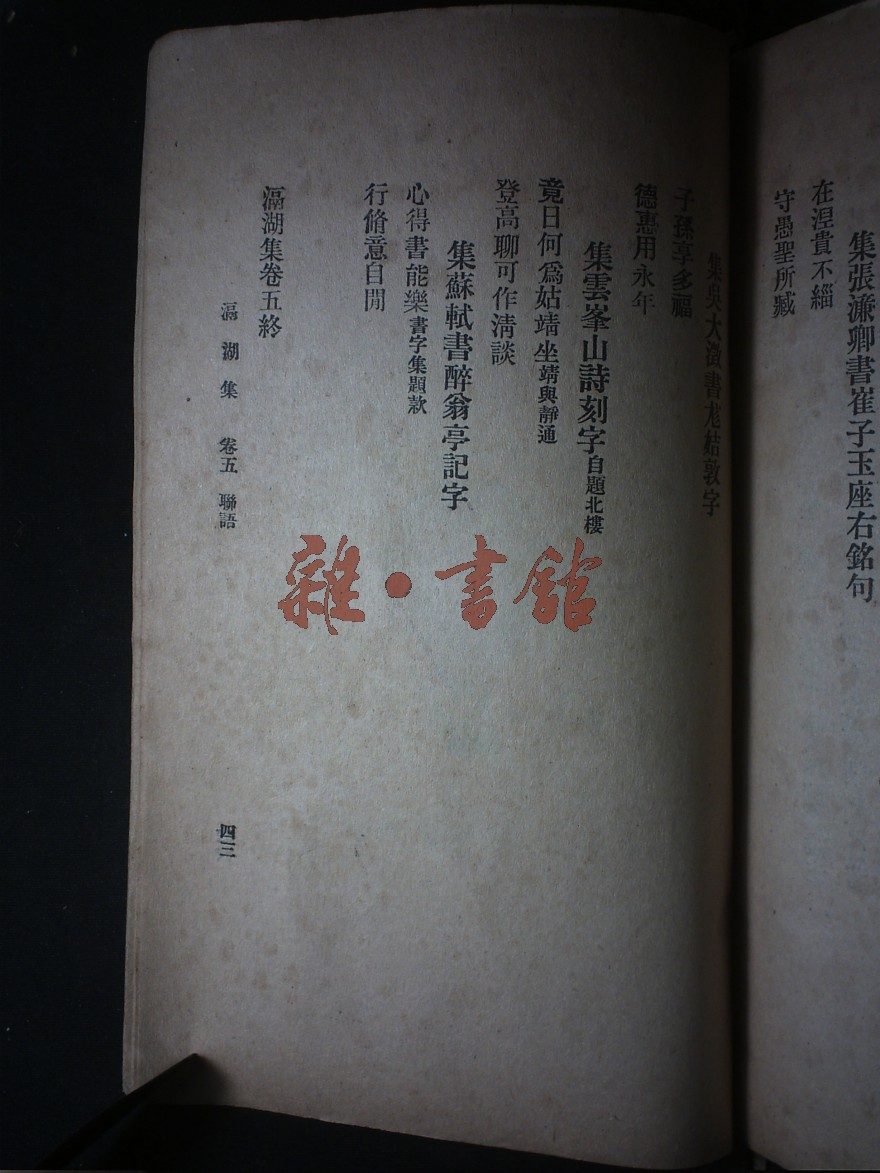 集張濂卿書崔子玉座右銘句
在涅貴不緇
守愚聖所臧
集吳大澂書尨姞敦字
子孫享多福
德惠用永年
集雲峯山詩刻字自題北樓
竟日何爲姑靖坐靖與靜通
登高聊可作淸談
集蘇軾書醉翁亭記字
心得書能樂書字集題款
行脩意自閒
滆湖集卷五終
滆湖集 卷五 聯語
四三
雜·書館